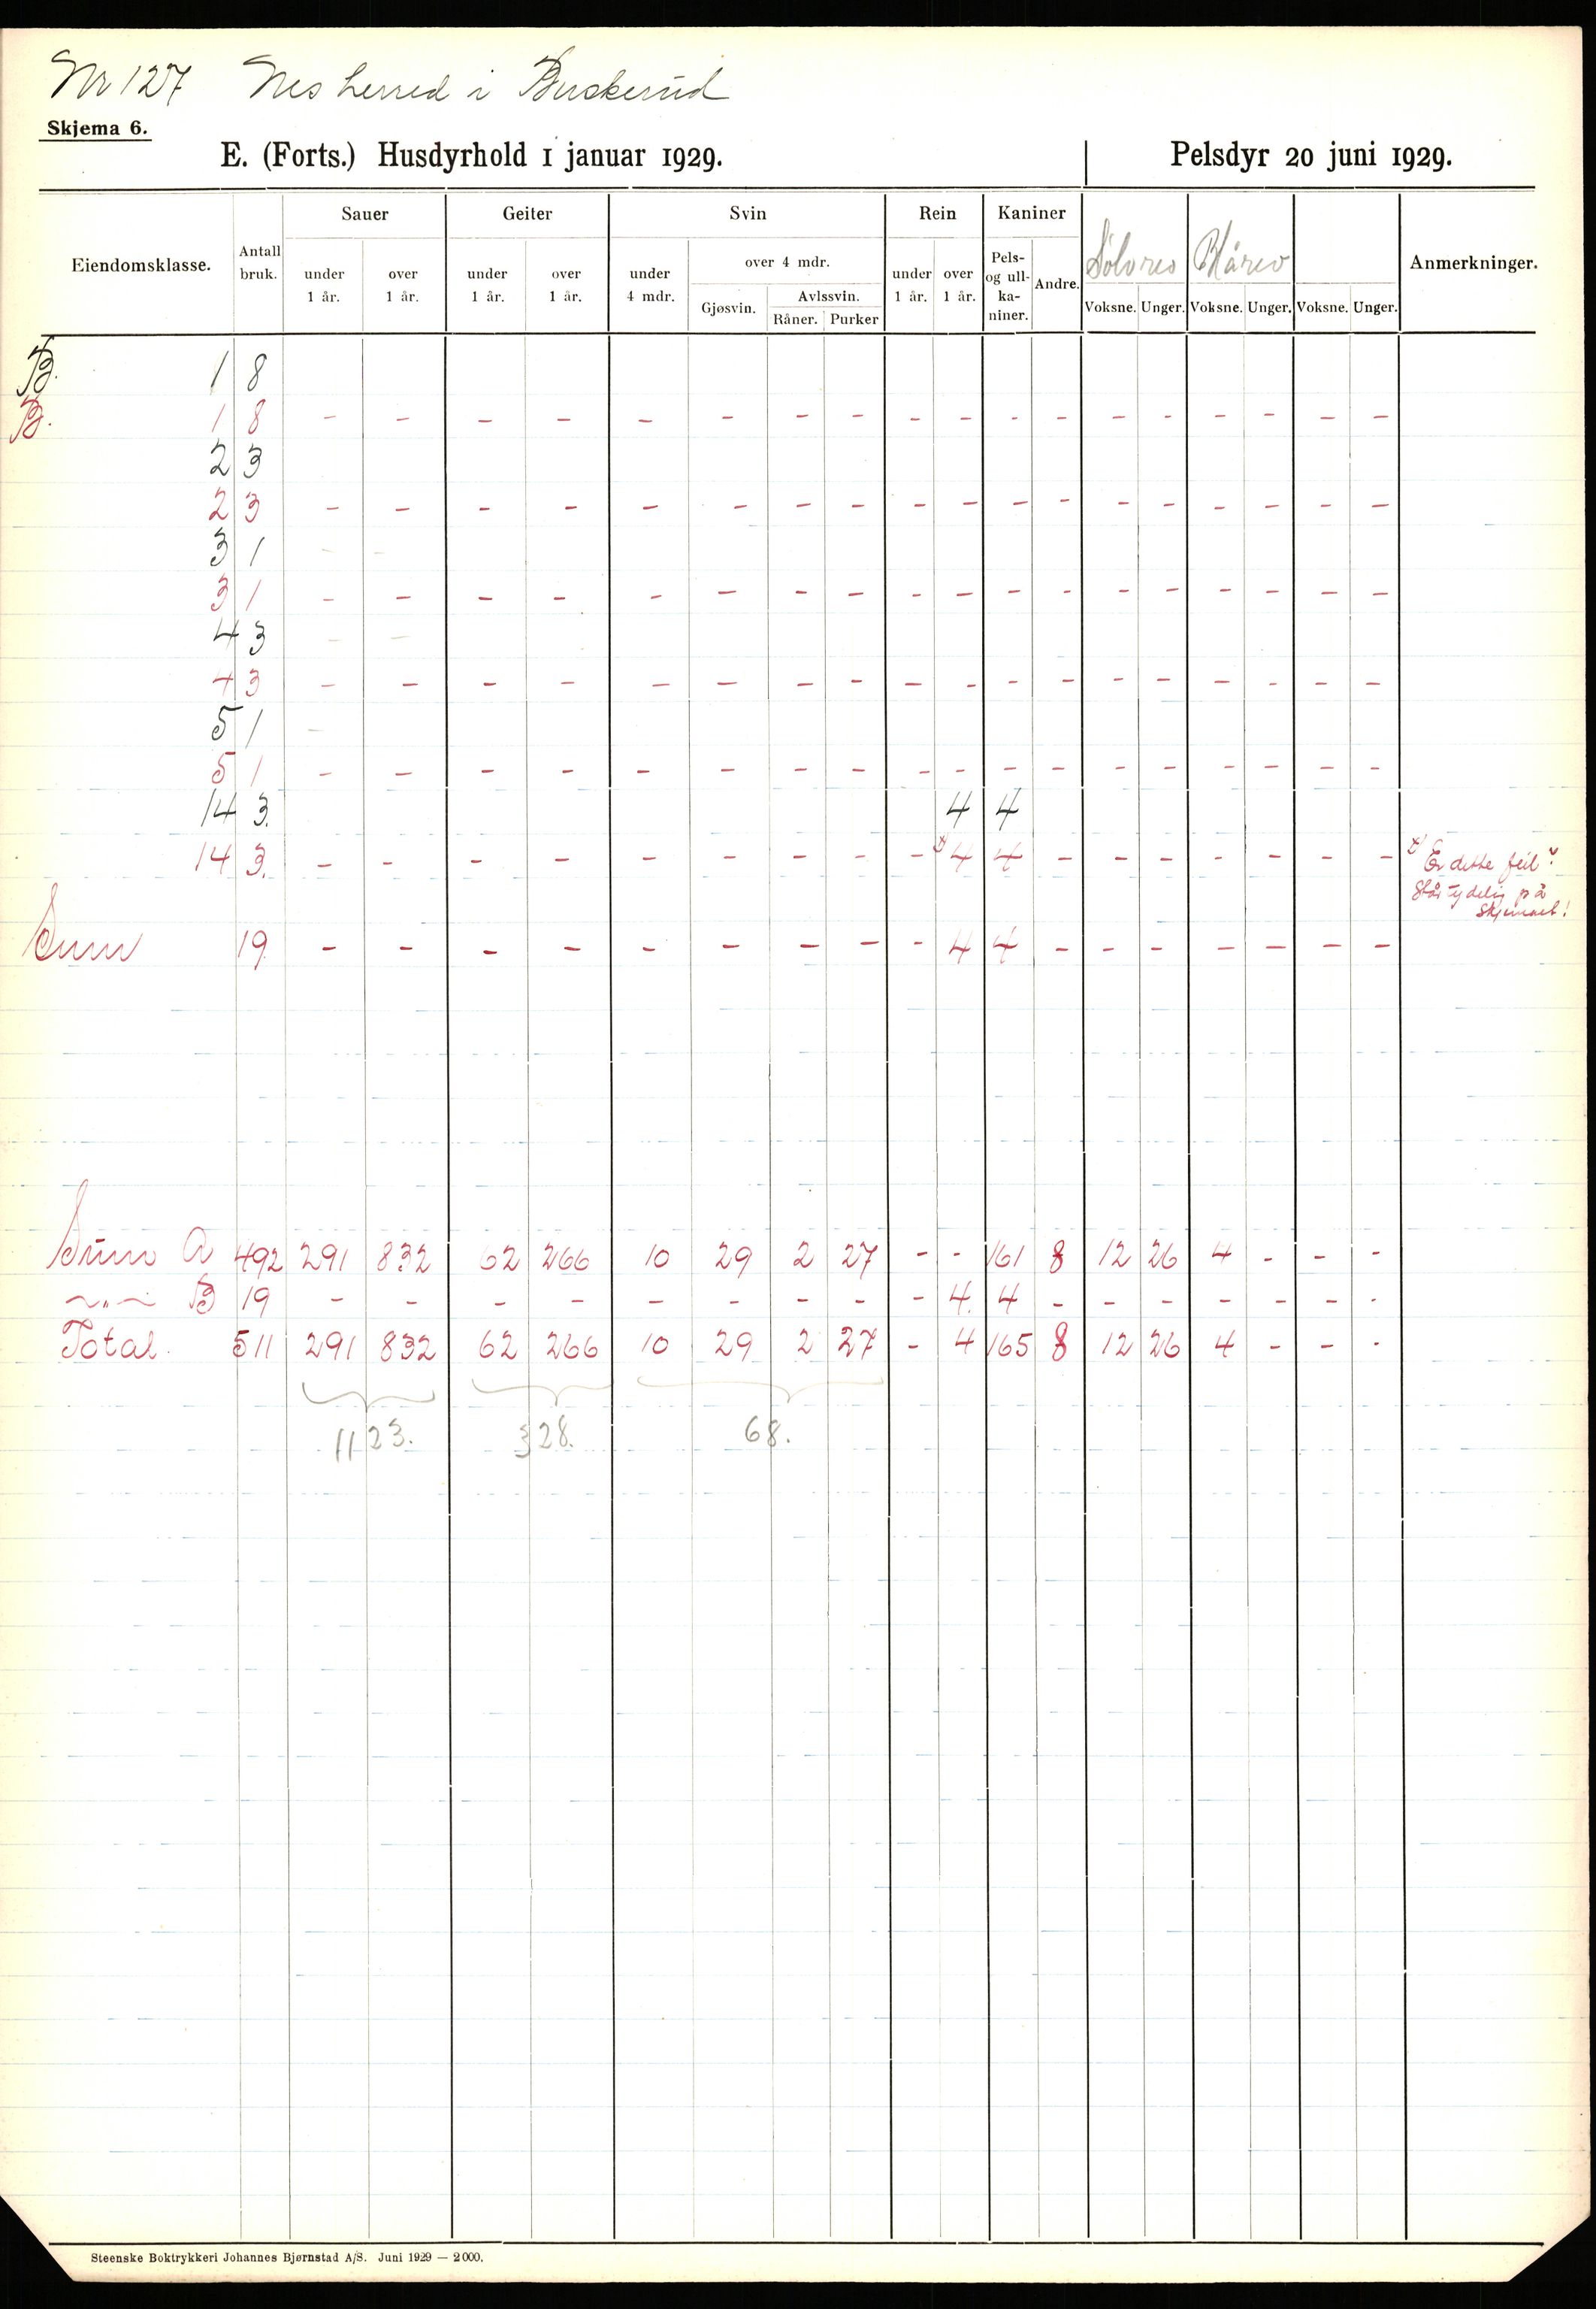 Nr 127 Nes herred i Buskerud
Skjema 6.
E. (Forts.) Husdyrhold 1 januar 1929. Pelsdyr 20 juni 1929.
Eiendomsklasse. Antall bruk. Sauer Geiter Svin Rein Kaniner Sølvrev Blårev Anmerkninger.
under 1 år. over 1 år. under 1 år. over 1 år. under 4 mdr. over 4 mdr. under 1 år. over 1 år. Pels- og ull- ka- niner. Andre. Voksne. Unger. Voksne. Unger. Voksne. Unger.
Gjøsvin. Avlssvin.
Råner. Purker
B. 1 8
B. 1 8 - - - - - - - - - - - - - - - - - -
2 3
2 3 - - - - - - - - - - - - - - - - - -
3 1 - -
3 1 - - - - - - - - - - - - - - - - - -
4 3 - -
4 3 - - - - - - - - - - - - - - - - - -
5 1 -
5 1 - - - - - - - - - - - - - - - - - -
14 3. 4 4
14 3. - - - - - - - - - x) 4 4 - - - - - - - x) Er dette feil?
Står tydelig på
skjemaet!
Sum 19. - - - - - - - - - 4 4 - - - - - - -
Sum A 492 291 832 62 266 10 29 2 27 - - 161 8 12 26 4 - - -
—„— B 19 - - - - - - - - - 4. 4 - - - - - - -
Total. 511 291 832 62 266 10 29 2 27 - 4 165 8 12 26 4 - - -
1123. 328. 68.
Steenske Boktrykkeri Johannes Bjørnstad A/S. Juni 1929 — 2 000.